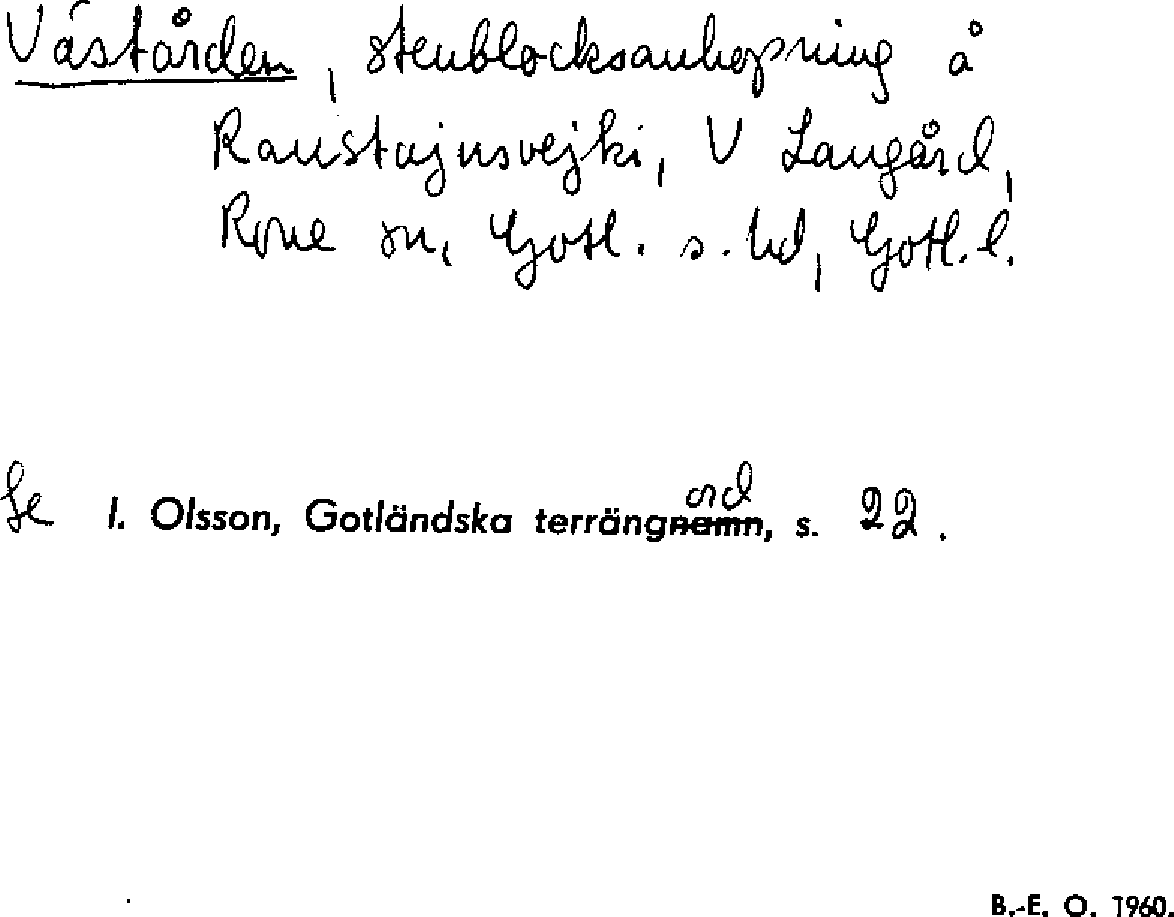 Västården, stenblocksanhopning å
Raustajnsvejki, V Laugård,
Rone sn, Gotl. s. hd, Gotl. l.
Se I. Olsson, Gotländska terrängord, s. 22.
B.-E. O. 1960.